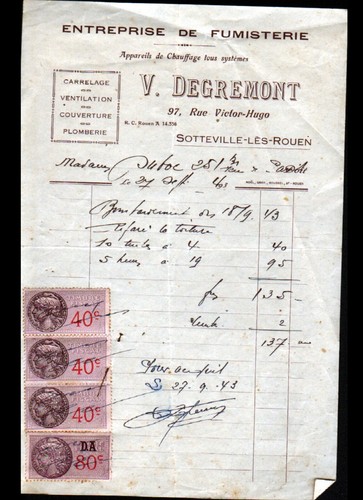 ENTREPRISE DE FUMISTERIE
Appareils de Chauffage tous systèmes
CARRELAGE
VENTILATION
COUVERTURE
PLOMBERIE
V. DEGREMONT
97, Rue Victor-Hugo
R. C. Rouen A 14.556
SOTTEVILLE-LÈS-ROUEN
Madame Duboc 251
le 27 Sept 43
Bombardement du 18/9 43
réparé la toiture
10 tuiles à 4 40
5 heures à 19 95
frs 135
Timbre 2
137
Pour acquit
27.9.43
40c
40c
40c
DA
80c